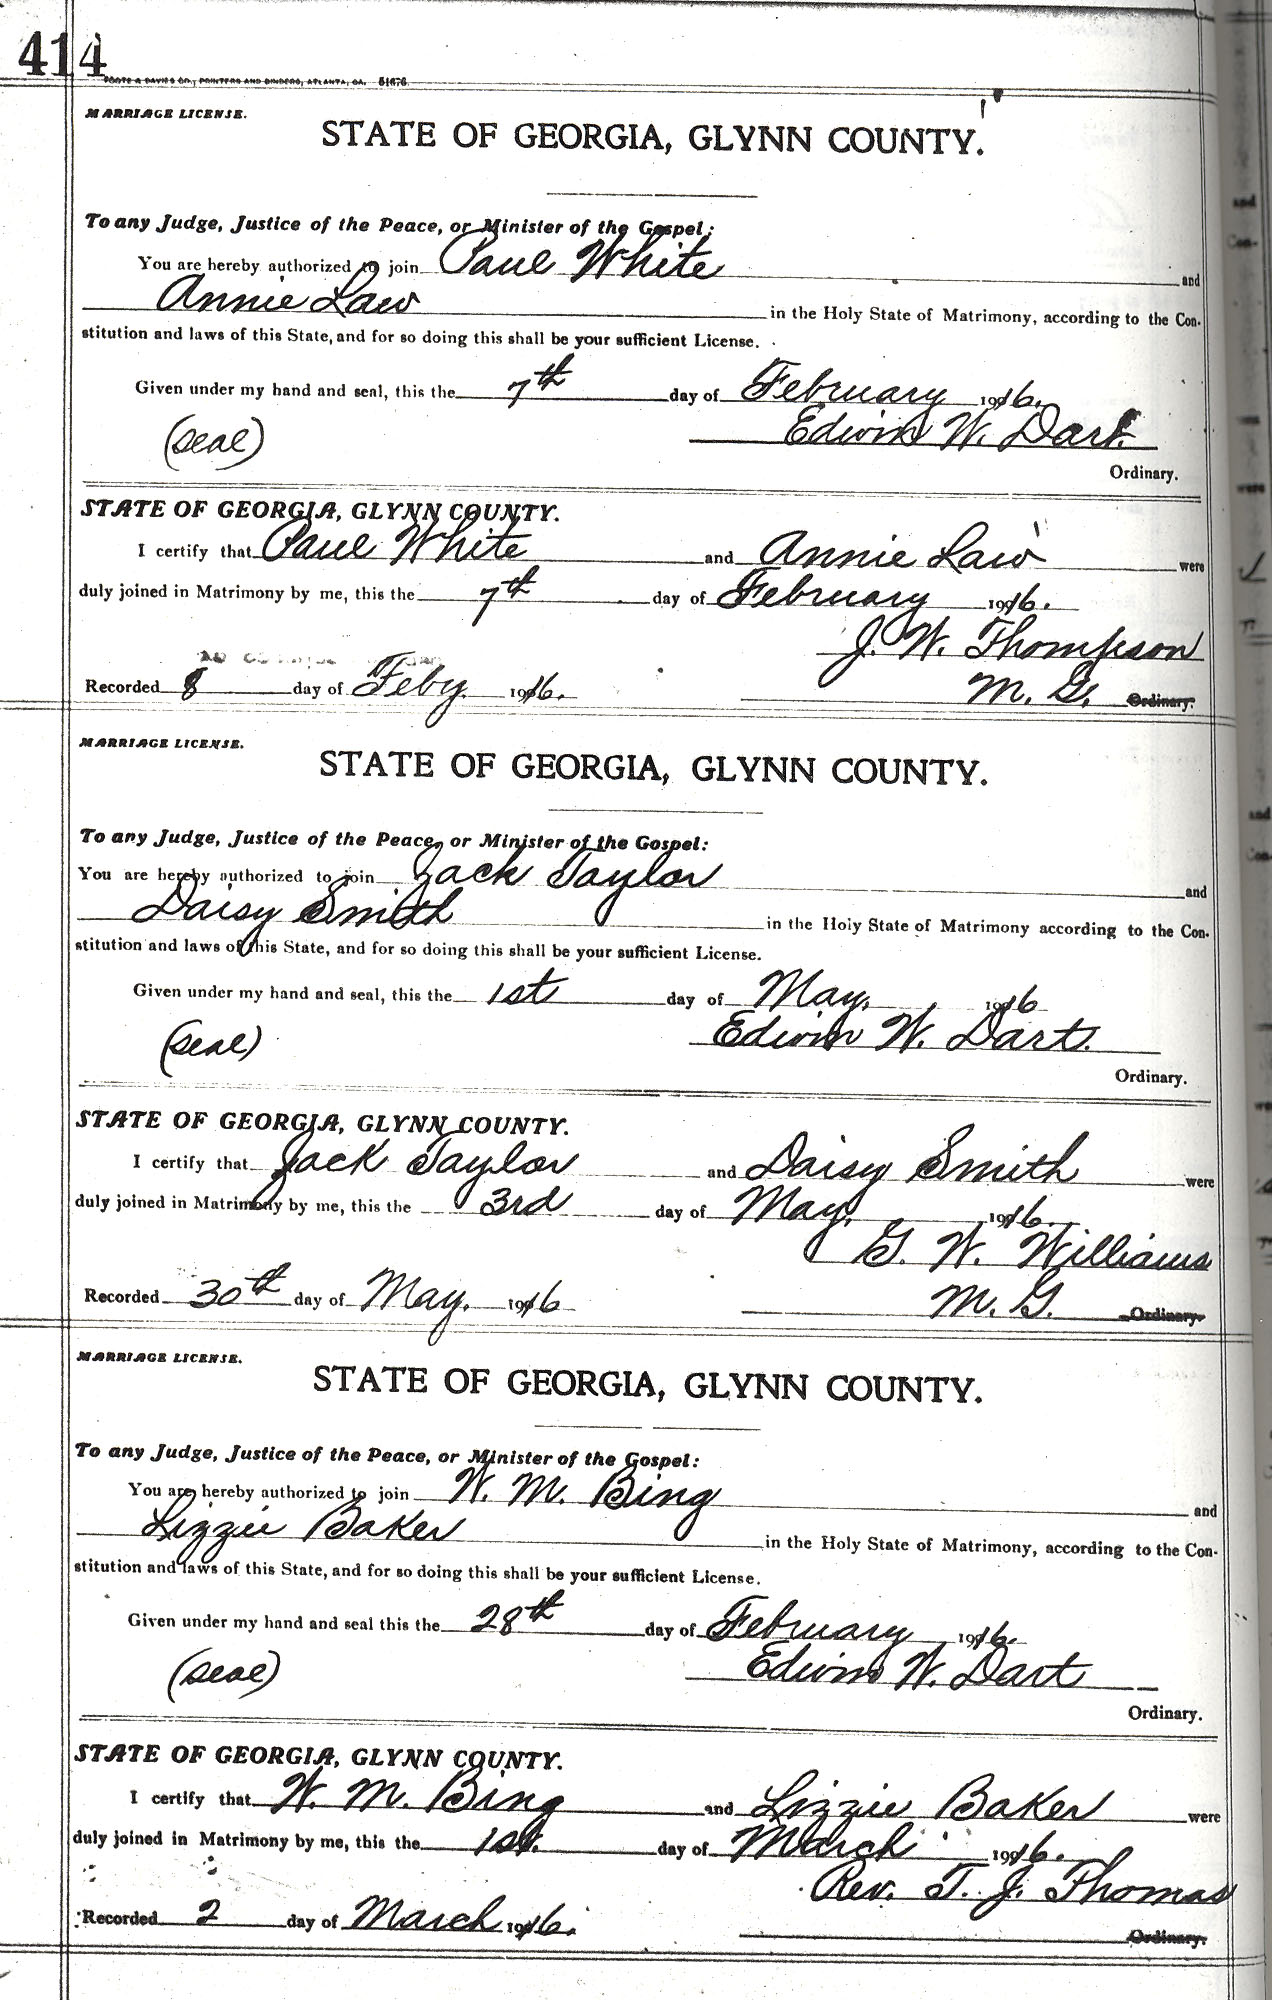 414
FOOTE & DAVIES CO., PRINTERS AND BINDERS, ATLANTA, GA. 51676
MARRIAGE LICENSE.
STATE OF GEORGIA, GLYNN COUNTY.
To any Judge, Justice of the Peace, or Minister of the Gospel:
You are hereby authorized to join Paul White and
Annie Law in the Holy State of Matrimony, according to the Con-
stitution and laws of this State, and for so doing this shall be your sufficient License.
Given under my hand and seal, this the 7th day of February 1916.
(seal) Edwin W. Dart.
Ordinary.
STATE OF GEORGIA, GLYNN COUNTY.
I certify that Paul White and Annie Law were
duly joined in Matrimony by me, this the 7th day of February 1916.
J. W. Thompson
Recorded 8 day of Feby. 1916. M. G. Ordinary.
MARRIAGE LICENSE.
STATE OF GEORGIA, GLYNN COUNTY.
To any Judge, Justice of the Peace, or Minister of the Gospel:
You are hereby authorized to join Jack Taylor and
Daisy Smith in the Holy State of Matrimony according to the Con-
stitution and laws of this State, and for so doing this shall be your sufficient License.
Given under my hand and seal, this the 1st day of May. 1916
(seal) Edwin W. Dart.
Ordinary.
STATE OF GEORGIA, GLYNN COUNTY.
I certify that Jack Taylor and Daisy Smith were
duly joined in Matrimony by me, this the 3rd day of May. 1916.
G. W. Williams
Recorded 30th day of May. 1916 M. G. Ordinary.
MARRIAGE LICENSE.
STATE OF GEORGIA, GLYNN COUNTY.
To any Judge, Justice of the Peace, or Minister of the Gospel:
You are hereby authorized to join W. M. Bing and
Lizzie Baker in the Holy State of Matrimony, according to the Con-
stitution and laws of this State, and for so doing this shall be your sufficient License.
Given under my hand and seal this the 28th day of February, 1916.
(seal) Edwin W. Dart
Ordinary.
STATE OF GEORGIA, GLYNN COUNTY.
I certify that W. M. Bing and Lizzie Baker were
duly joined in Matrimony by me, this the 1st. day of March 1916.
Rev. T. J. Thomas
Recorded 2 day of March 1916. Ordinary.